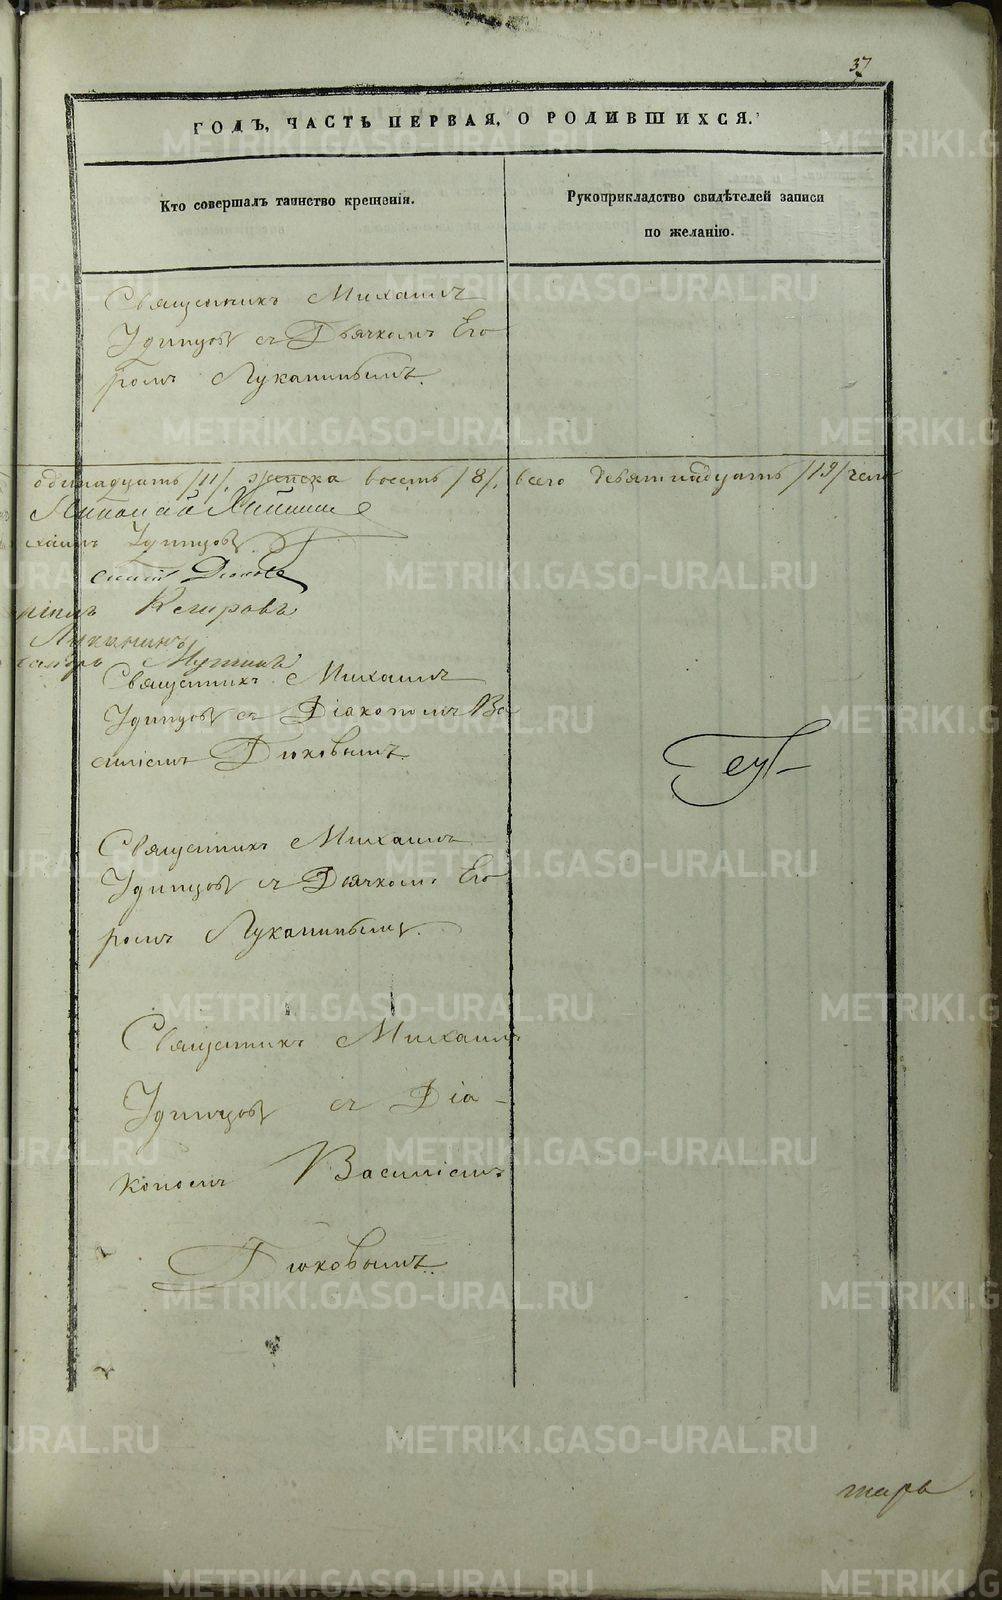 37
ГОДЪ, ЧАСТЬ ПЕРВАЯ, О РОДИВШИХСЯ.
Кто совершалъ таинство крещенія.
Рукоприкладство свидѣтелей записи
по желанію.
Священникъ Михаилъ
Удинцовъ съ Дьячкомъ Его
ромъ Луканинымъ.
одинадцать /11/, женска восемь /8/, всего девятнадцать /19/ чело
Николай
хаилъ Удинцовъ
силій Дюковъ
Луканинъ
Священникъ Михаилъ
Удинцовъ съ Діакономъ Ва
силіемъ Дюковымъ.
Священникъ Михаилъ
Удинцовъ съ Дьячкомъ Его
ромъ Луканинымъ.
Священникъ Михаилъ
Удинцовъ съ Діа-
кономъ Василіемъ
Дюковымъ.
тарь
METRIKI.GASO-URAL.RU